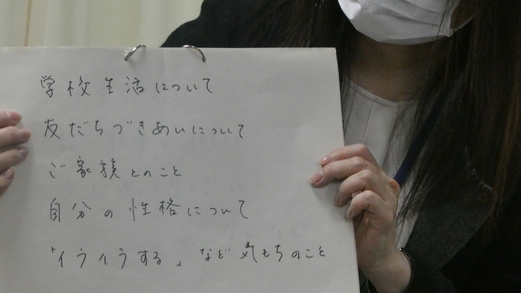 学校生活について
友だちづきあいについて
ご家族とのこと
自分の性格について
「イライラする」など気もちのこと